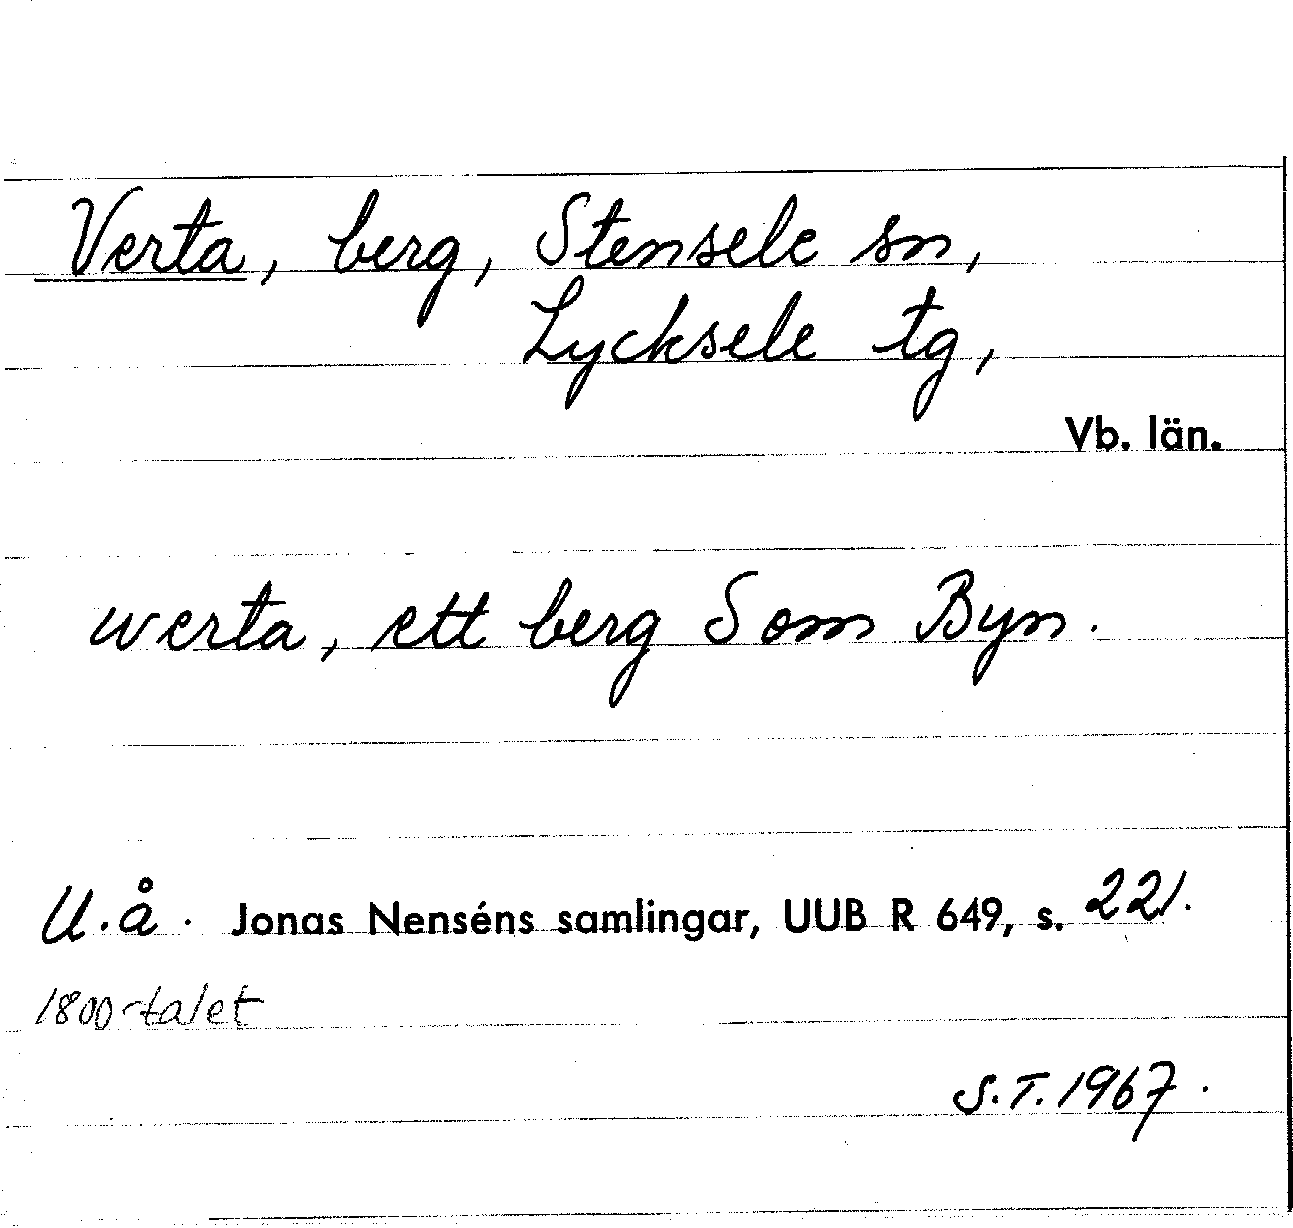 Verta, berg, Stensele sn,
Lycksele tg,
Vb. län.
werta, ett berg Som Byn.
U.å. Jonas Nenséns samlingar, UUB R 649, s. 221.
1800-talet
S.T. 1967.